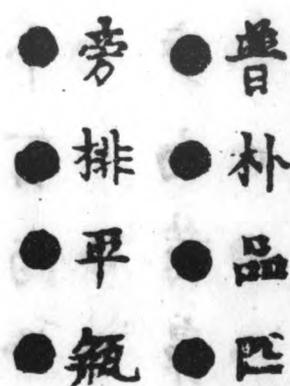 ●普
●朴
●品
●匹
●旁
●排
●平
●瓶